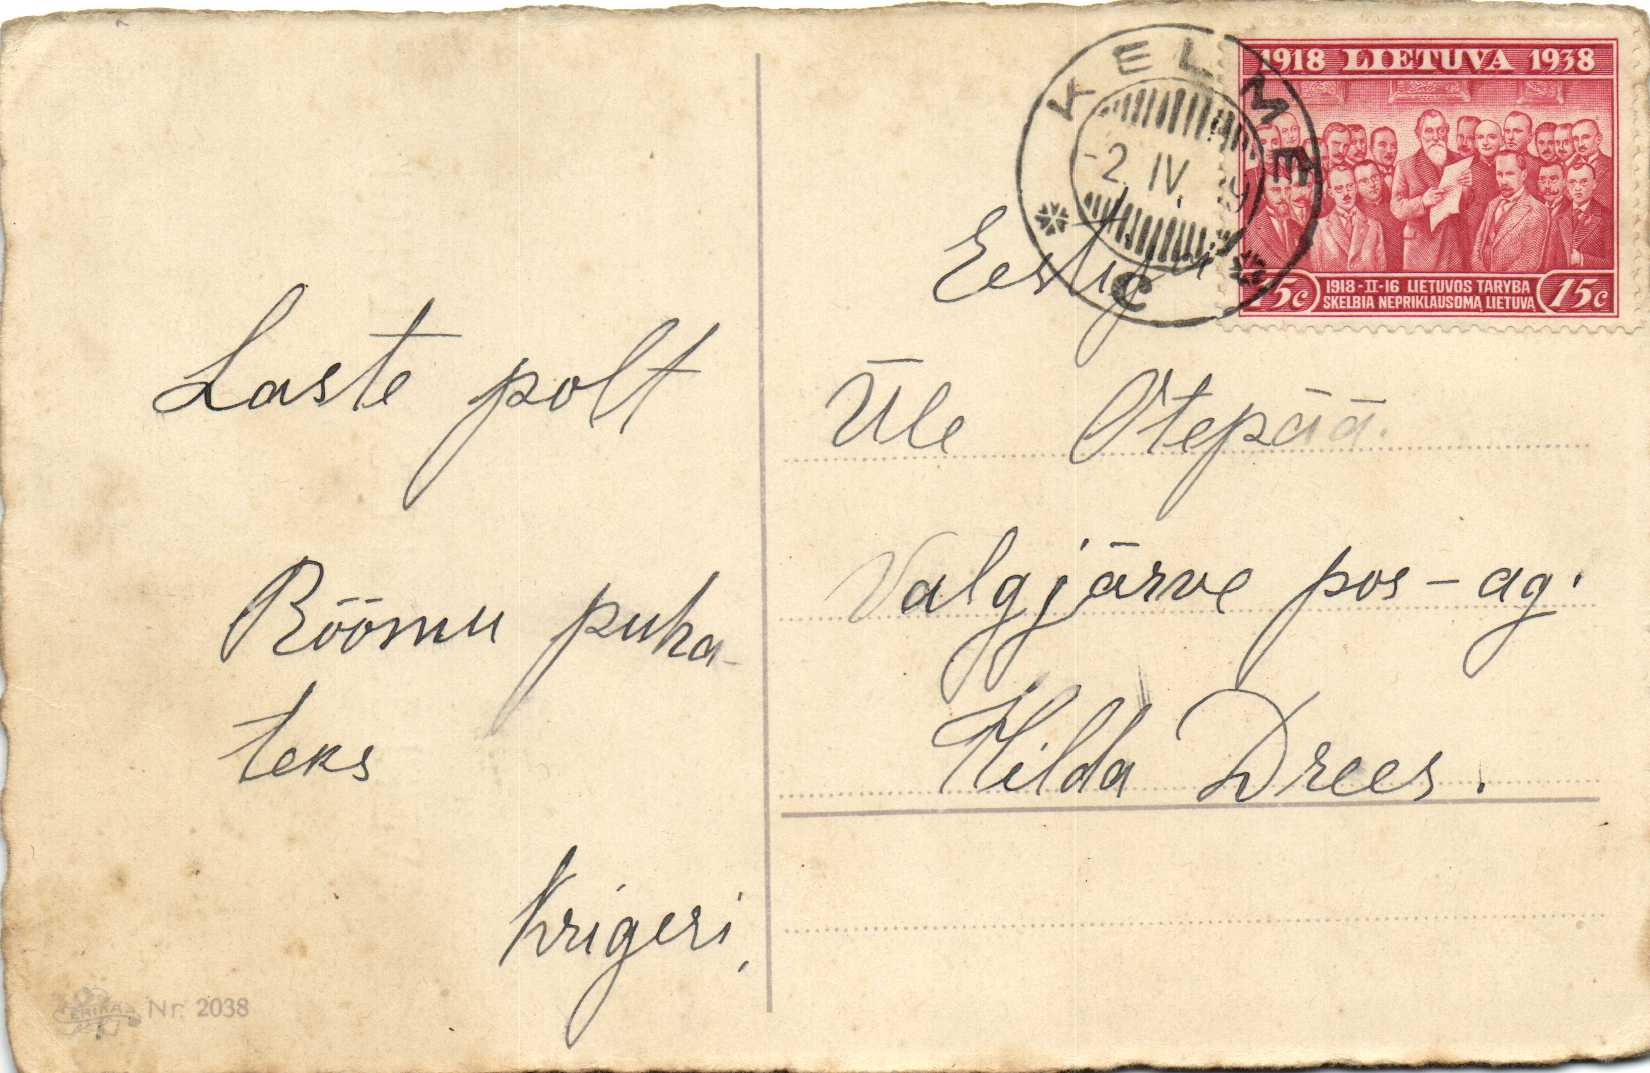 Laste polt
Rõõmu puha-
teks
Krigeri,
ERIKA Nr. 2038
KELMĖ
-2. IV.
C
1918 LIETUVA 1938
15c 1918-II-16 LIETUVOS TARYBA 15c
SKELBIA NEPRIKLAUSOMĄ LIETUVĄ
Üle Otepää.
Valgjärve pos-ag.
Hilda Drees.